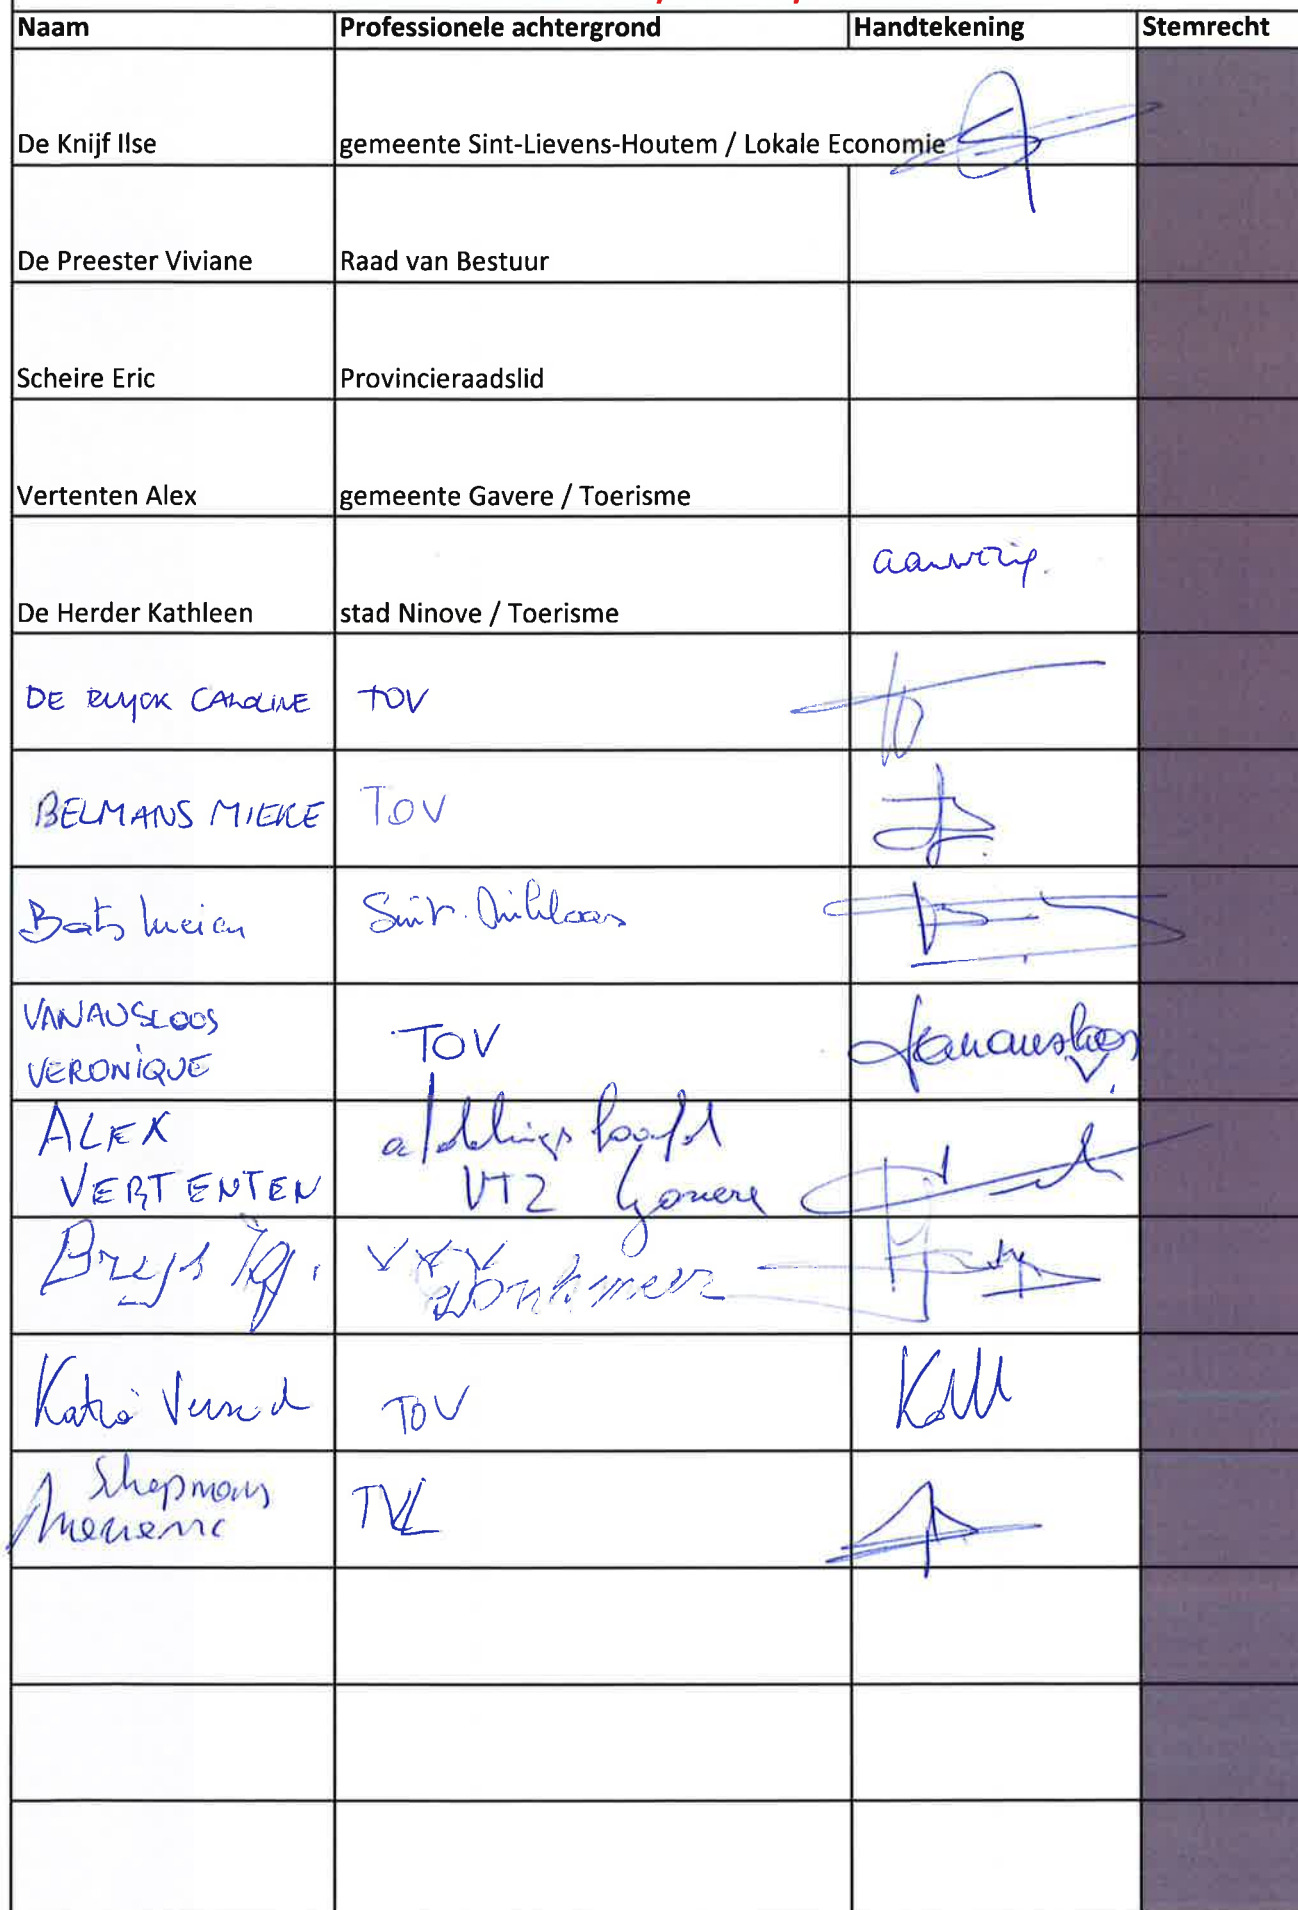 Naam Professionele achtergrond Handtekening Stemrecht
De Knijf Ilse gemeente Sint-Lievens-Houtem / Lokale Economie
De Preester Viviane Raad van Bestuur
Scheire Eric Provincieraadslid
Vertenten Alex gemeente Gavere / Toerisme
aanwezig.
De Herder Kathleen stad Ninove / Toerisme
DE RUYCK CAROLINE TOV
BELMANS MIEKE TOV
Bats Lucien Sint-Niklaas
VANAUSLOOS
VERONIQUE
TOV Vanausloos V.
ALEX
VERTENTEN
afdelingshoofd
VTZ Gavere
Breys VVV
Donkmeer
Katia TOV
Schepmans
TVL